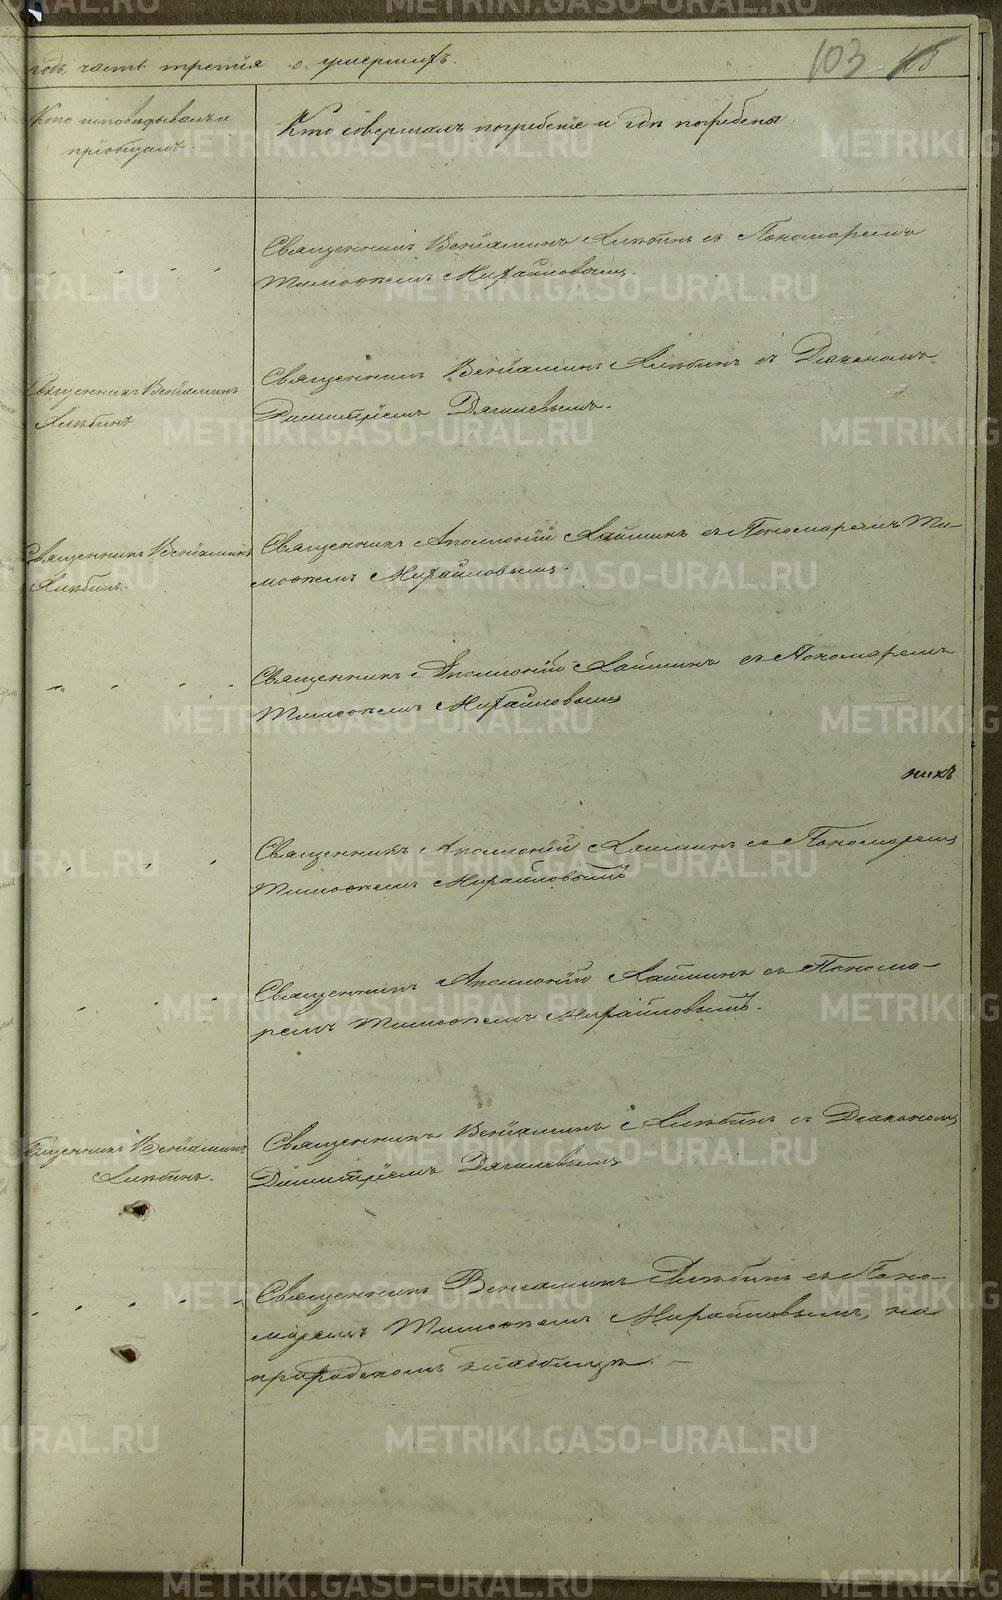 годъ, часть третія о умершихъ.
103
Кто исповѣдывалъ и
пріобщалъ.
Кто совершалъ погребеніе и гдѣ погребены.
Священникъ Веніаминъ Алябинъ съ Пономаремъ
Тимоѳеемъ Михайловымъ.
Священникъ Веніаминъ
Алябинъ.
Священникъ Веніаминъ Алябинъ съ Діакономъ
Димитріемъ Дягилевымъ.
Священникъ Веніаминъ
Алябинъ.
Священникъ Аполлоній Лаптинъ съ Пономаремъ Ти-
моѳеемъ Михайловымъ.
Священникъ Аполлоній Лаптинъ съ Пономаремъ
Тимоѳеемъ Михайловымъ
никъ
Священникъ Аполлоній Лаптинъ съ Пономаремъ
Тимоѳеемъ Михайловымъ
Священникъ Аполлоній Лаптинъ съ Понома-
ремъ Тимоѳеемъ Михайловымъ.
Священникъ Веніаминъ
Алябинъ.
Священникъ Веніаминъ Алябинъ съ Діакономъ
Димитріемъ Дягилевымъ
Священникъ Веніаминъ Алябинъ съ Поно-
маремъ Тимоѳеемъ Михайловымъ, на
приходскомъ кладбищѣ. —
METRIKI.GASO-URAL.RU